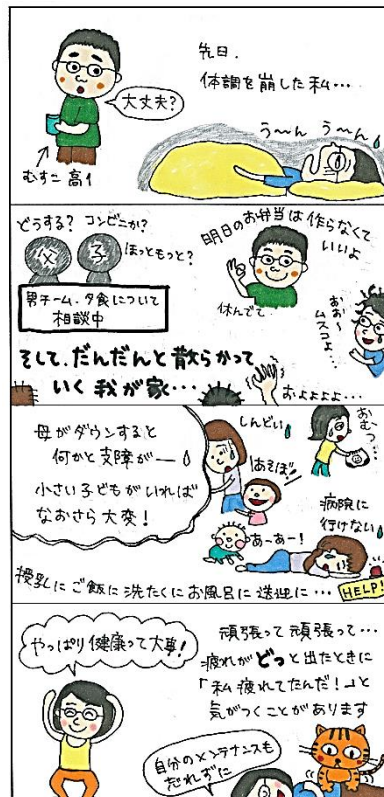 先日、
体調を崩した私…
大丈夫?
むすこ 高1
う〜ん う〜ん
どうする? コンビニか?
ほっともっと?
父
子
男チーム、夕食について
相談中
明日のお弁当は作らなくて
いいよ
休んでて
おぉ〜
ムスコよ…
そして、だんだんと散らかって
いく我が家…
およよよよ…
母がダウンすると
何かと支障が―
小さい子どもがいれば
なおさら大変!
しんどい
おむつ…
あそぼ!
あーあー!
病院に
行けない
授乳にご飯に洗たくにお風呂に送迎に…
HELP!
やっぱり健康って大事!
頑張って頑張って…
疲れがどっと出たときに
「私疲れてたんだ!」と
気がつくことがあります
自分のメンテナンスも
忘れずに